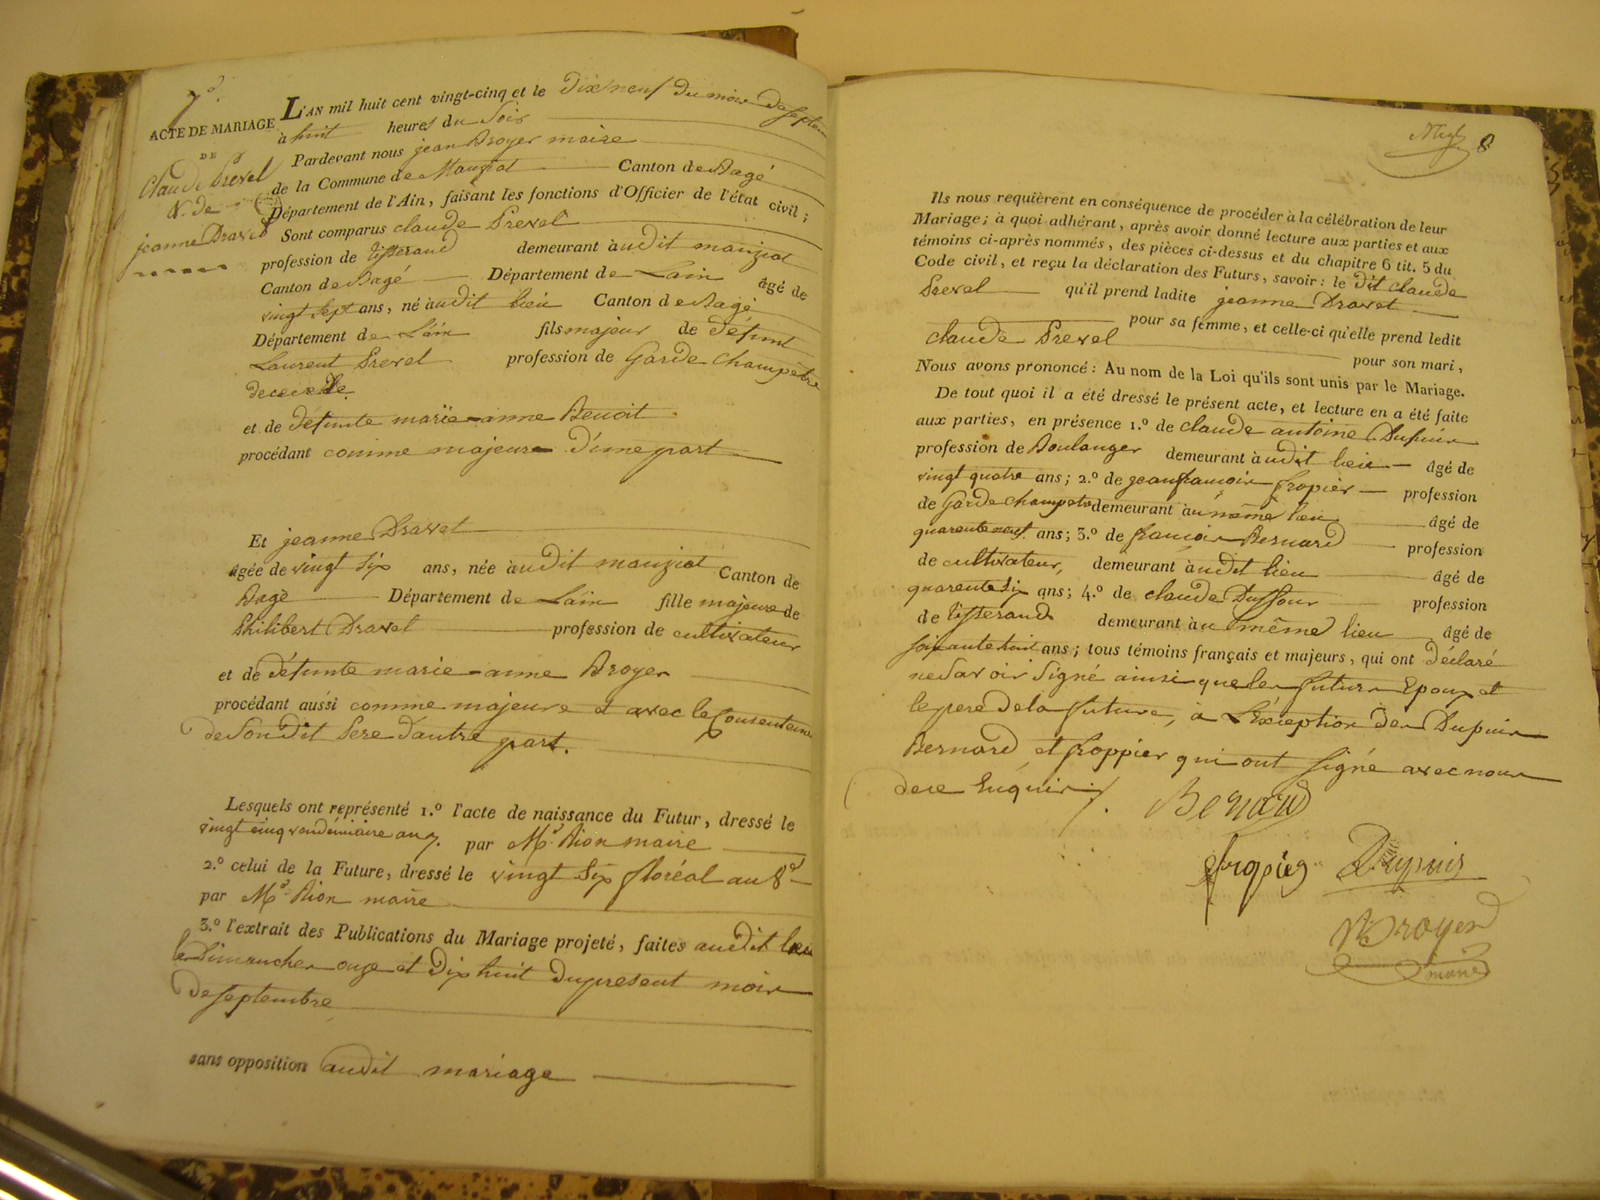 7°.
ACTE DE MARIAGE
DE
Claude Prevel
& de
jeanne Dravet
L'AN mil huit cent vingt-cinq et le Dix neuf du mois De septem
à huit heures du Soir
Pardevant nous jean Broyer maire
de la Commune de Manziat Canton de Bagé
Département de l'Ain, faisant les fonctions d'Officier de l'état civil;
Sont comparus claude Prevel
profession de tisserand demeurant audit manziat
Canton de Bagé Département de Lain âgé de
vingt sept ans, né audit lieu Canton de Bagé
Département de L'ain fils majeur de défunt
Laurent Prevel profession de Garde champêtre
decedé
et de défunte marie-anne Benoit
procédant comme majeur D'une part
Et jeanne Dravet
agée de vingt six ans, née audit manziat Canton de
Bagé Département de Lain fille majeure de
Philibert Dravet profession de cultivateur
et de défunte marie-anne Broyer
procédant aussi comme majeure et avec le Consentement
de Son dit Pere D'autre part.
Lesquels ont représenté 1.º l'acte de naissance du Futur, dressé le
vingt cinq vendémiaire an 7. par Mr. Rion maire
2.º celui de la Future, dressé le vingt six floréal an 8e
par Mr. Rion maire
3.º l'extrait des Publications du Mariage projeté, faites audit lieu
les Dimanches onze et Dix huit Du present mois
De septembre
sans opposition audit mariage
8
Ils nous requièrent en conséquence de procéder à la célébration de leur
Mariage; à quoi adhérant, après avoir donné lecture aux parties et aux
témoins ci-après nommés, des pièces ci-dessus et du chapitre 6 tit. 5 du
Code civil, et reçu la déclaration des Futurs, savoir: le dit claude
Prevel qu'il prend ladite jeanne Dravet
pour sa femme, et celle-ci qu'elle prend ledit
claude Prevel pour son mari,
Nous avons prononcé: Au nom de la Loi qu'ils sont unis par le Mariage.
De tout quoi il a été dressé le présent acte, et lecture en a été faite
aux parties, en présence 1.º de claude antoine Dupuis
profession de Boulanger demeurant audit lieu âgé de
vingt quatre ans; 2.º de jean françois fropier profession
de Garde champetre demeurant au même lieu âgé de
quarente neuf ans; 3.º de françois Bernard profession
de cultivateur, demeurant audit lieu âgé de
quarente six ans; 4.º de claude Duffour profession
de tisserand demeurant au même lieu âgé de
soixante huit ans; tous témoins français et majeurs, qui ont Déclaré
ne savoir signé ainsi que les futurs Epoux et
le pere de la future, à L'exception des Dupuis
Bernard et froppier qui ont signé avec nous
de ce Enquis
Bernard
fropier Dupuis
Broyer
maire